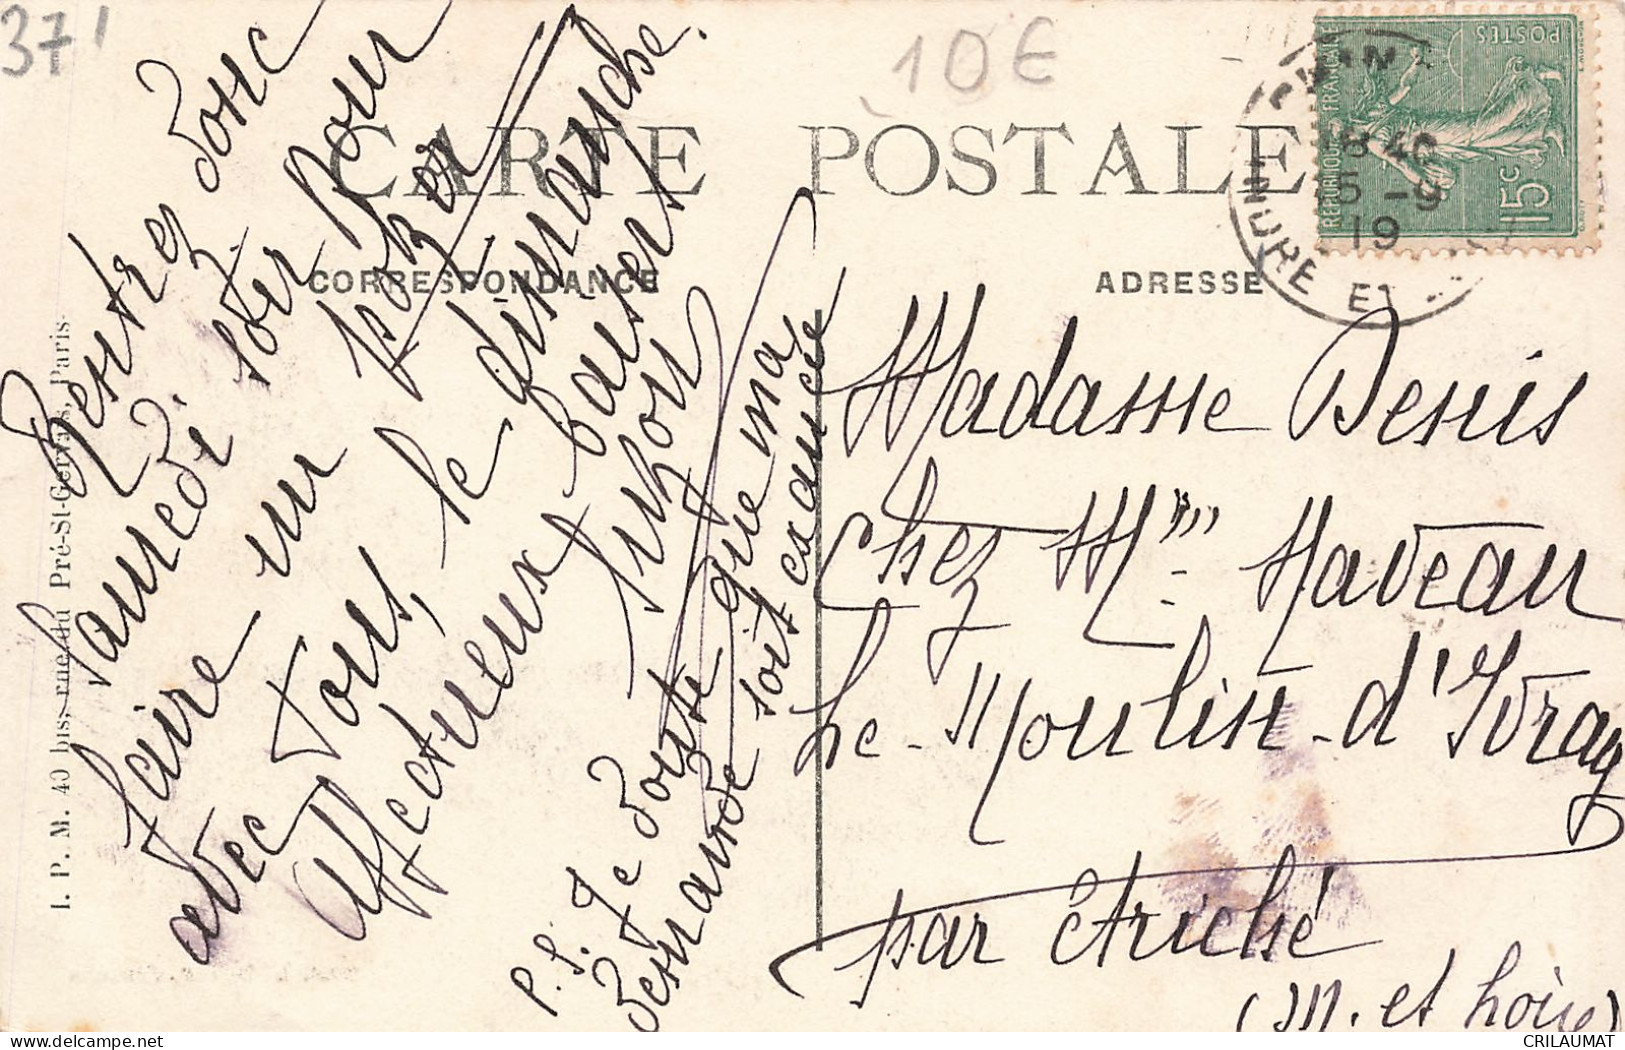 371
10€
CARTE POSTALE
CORRESPONDANCE
ADRESSE
REPUBLIQUE FRANCAISE
POSTES
15c
18 40
5 -9
19
INDRE ET
I. P. M. 40 bis. rue du Pré-St-Gervais, Paris.
Rentrez donc
samedi soir pour
faire un poker
avec tous, le dimanche.
Affectueux baisers
Suzon
P.S. Je doute que ma
demande soit exaucée
Madame Denis
Chez Mme Naveau
Le Moulin d'Ivray
par Étriché
(M. et Loire)
CRILAUMAT